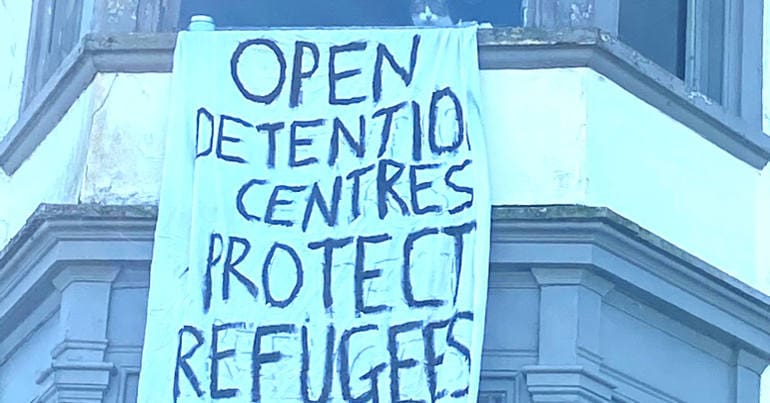 OPEN
DETENTIO
CENTRES
PROTECT
REFUGEES